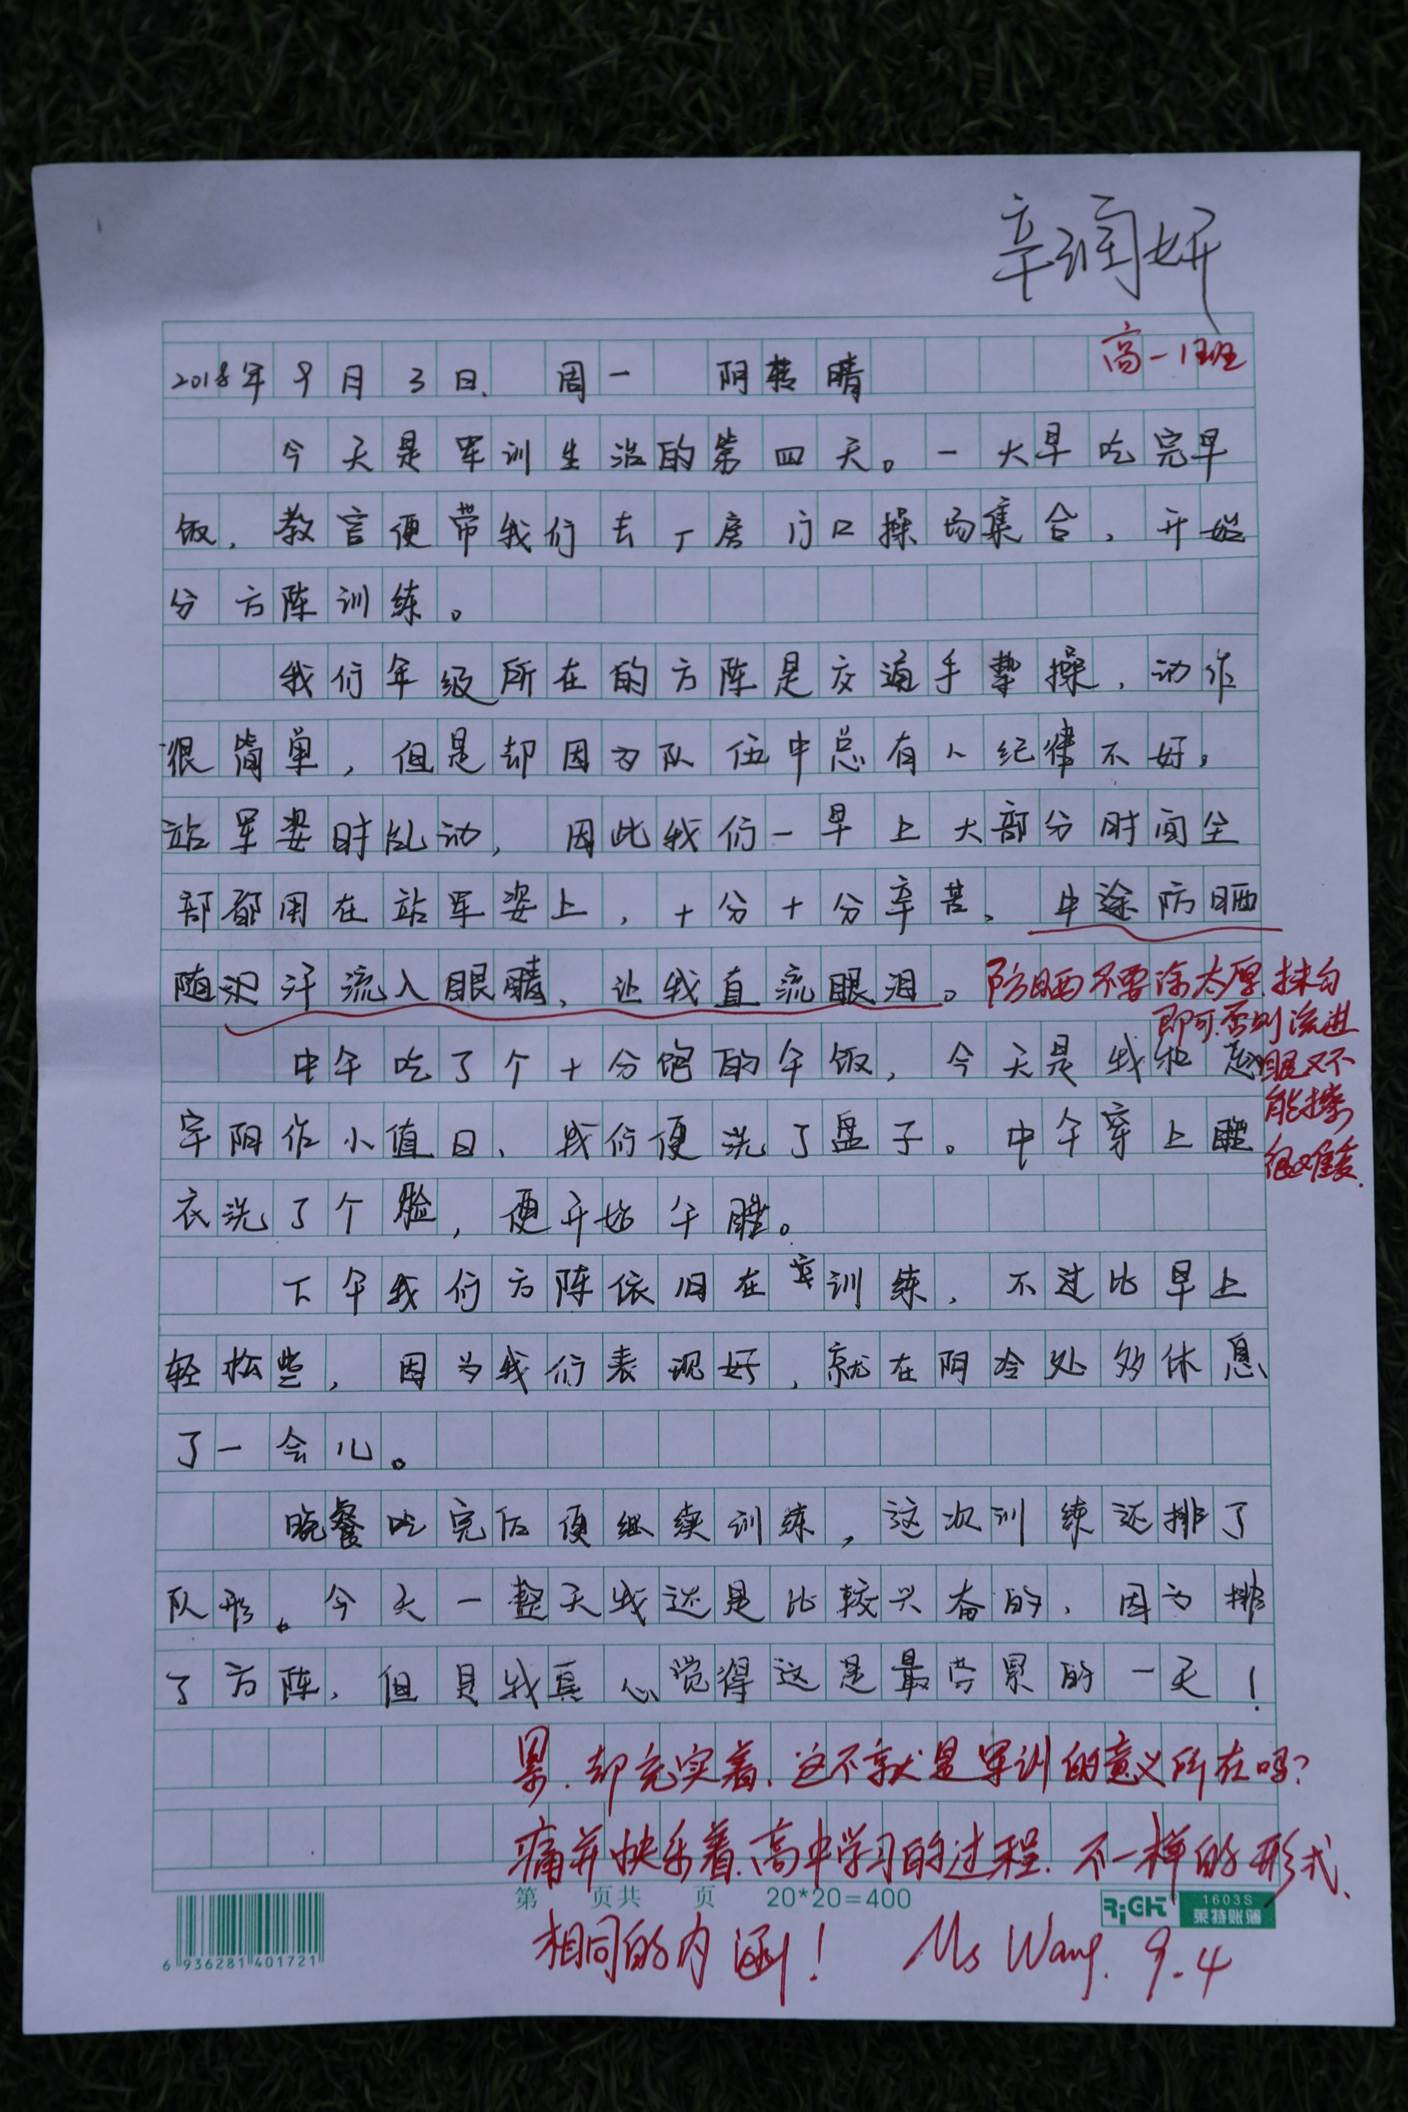 辛润妍
高一1班
2018年9月3日、周一 阴转晴
今天是军训生活的第四天。一大早吃完早
饭，教官便带我们去厂房门口操场集合，开始
分方阵训练。
我们年级所在的方阵是交通手势操，动作
很简单，但是却因为队伍中总有人纪律不好，
站军姿时乱动，因此我们一早上大部分时间全
部都用在站军姿上，十分十分辛苦。中途防晒
随汗流入眼睛，让我直流眼泪。
防晒不要涂太厚，抹匀
即可，否则流进
眼又不
能擦
很难受.
中午吃了个十分饱的午饭，今天是我和赵
宇阳作小值日、我们便洗了盘子。中午穿上睡
衣洗了个脸，便开始午睡。
下午我们方阵依旧在训练，不过比早上
轻松些，因为我们表现好，就在阴冷处多休息
了一会儿。
晚餐吃完后便继续训练，这次训练还排了
队形。今天一整天我还是比较兴奋的，因为排
了方阵，但是我真心觉得这是最劳累的一天！
累.却充实着、这不就是军训的意义所在吗？
痛并快乐着、高中学习的过程、不一样的形式、
相同的内涵！ Ms Wang. 9.4
第 页共 页 20*20=400
RiGHT 1603S
莱特账簿
6 936281 401721